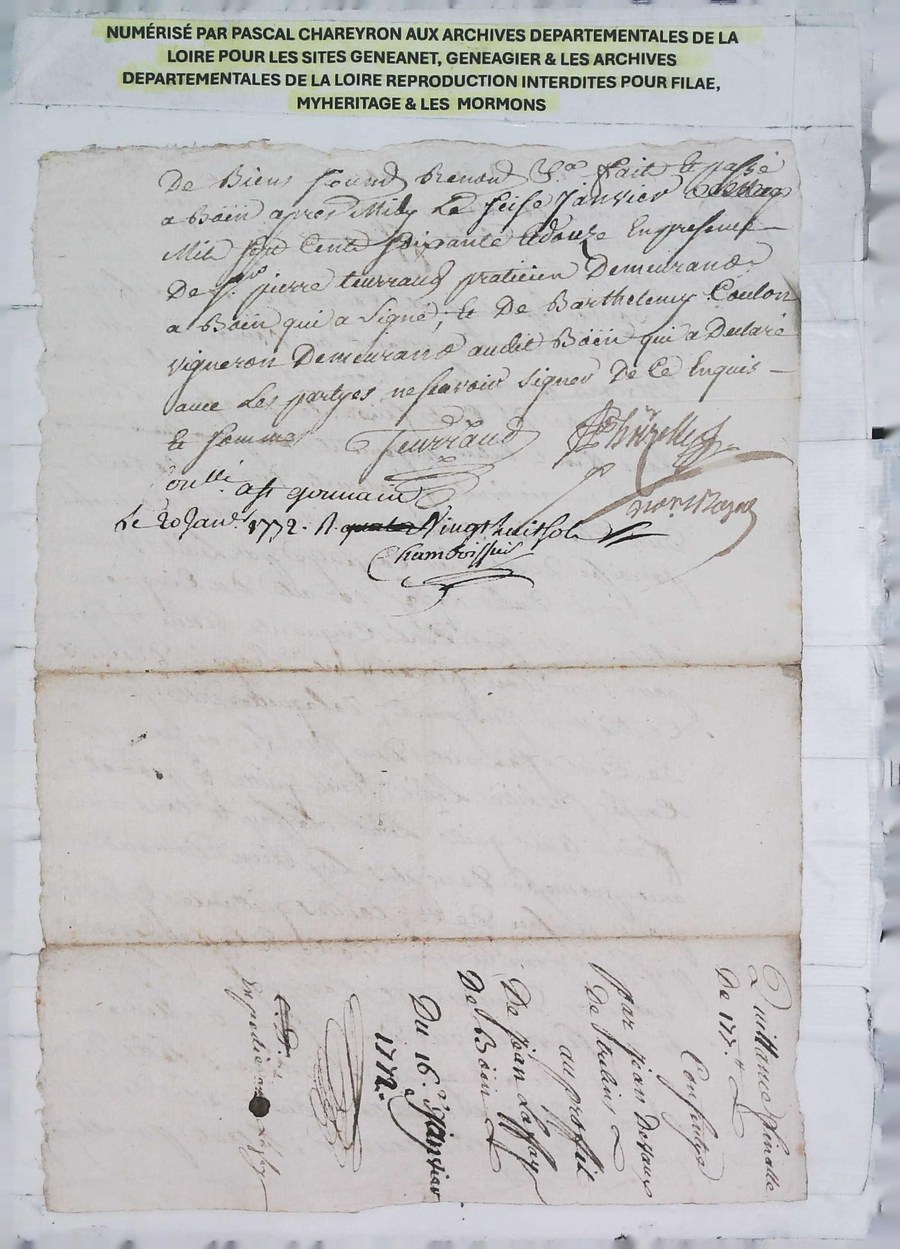 NUMÉRISÉ PAR PASCAL CHAREYRON AUX ARCHIVES DEPARTEMENTALES DE LA
LOIRE POUR LES SITES GENEANET, GENEAGIER & LES ARCHIVES
DEPARTEMENTALES DE LA LOIRE REPRODUCTION INTERDITES POUR FILAE,
MYHERITAGE & LES MORMONS
De Biens Renond fait et passé
a Böen apres Midy Le seise Janvier
Mil sept Cent soixante & douze En presence
De Sr. pierre turraud praticien Demeurand
a Böen qui a Signé, et De Barthelemy Coulon
vigneron Demeurand audit Böen qui a Declaré
avec Les partyes ne scavoir signer De Ce Enquis
Et sommés Turraud
Conllé a St germain
Le 20 Janv. 1772. R. Vingt huit sols
Chamboissier
Quittance finalle
De 177.
Consentie
par jean
De
au proffit
De jean Laffay
De Böen
Du 16e. Janvier
1772.
Expedié